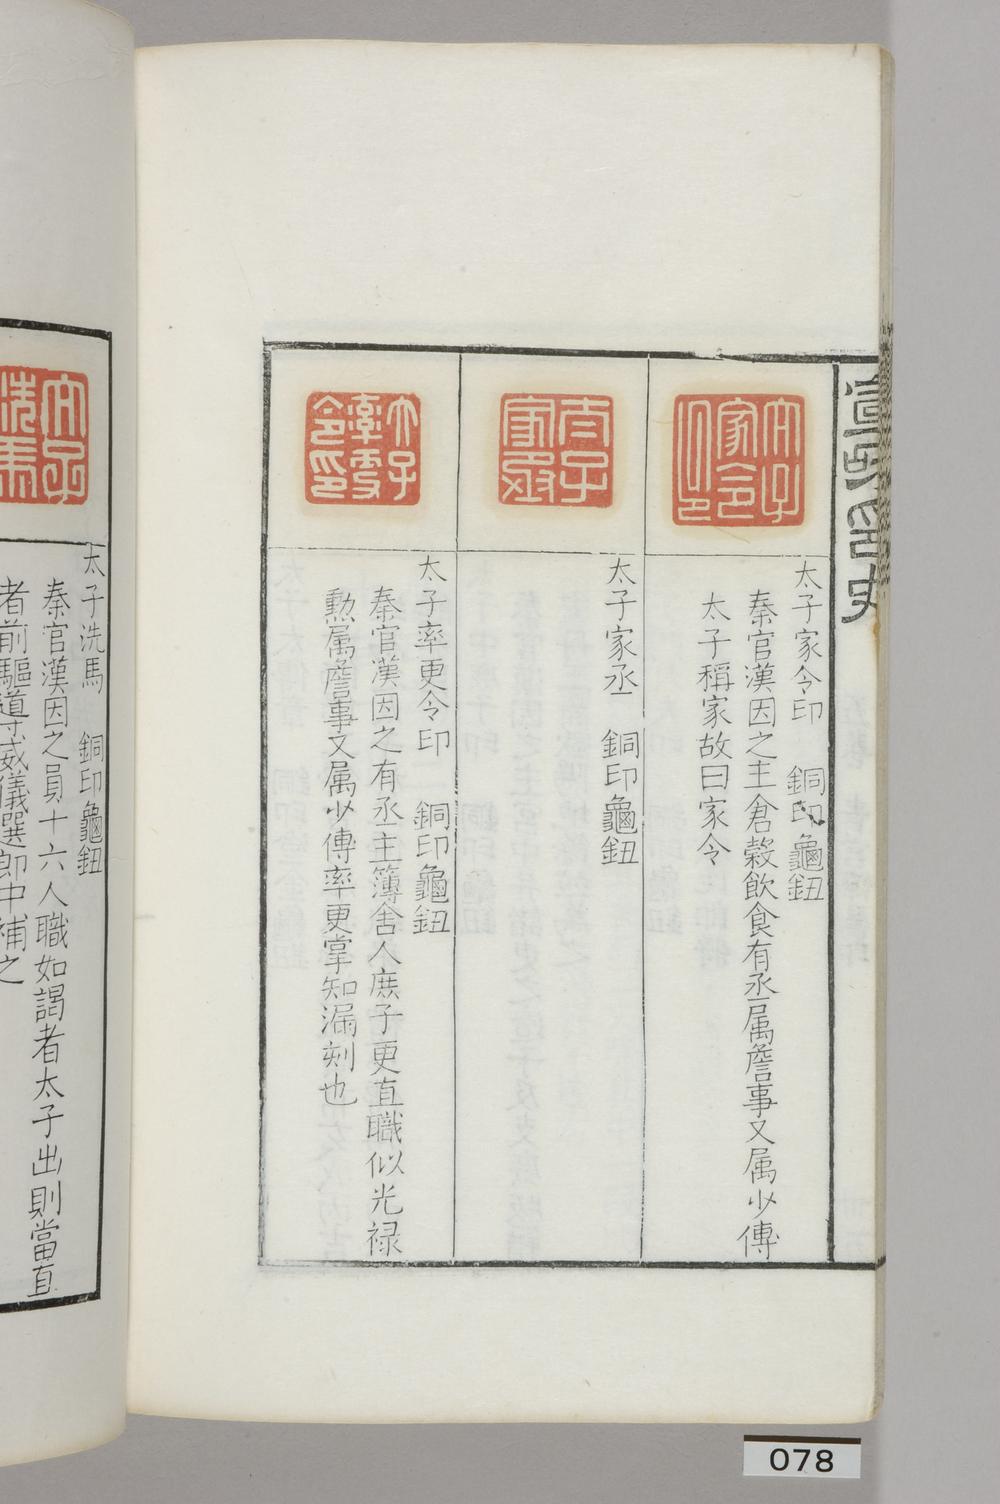 宣和印史
太子家令印
太子家令印　銅印龜鈕
秦官漢因之主倉穀飲食有丞屬詹事又属少傅
太子稱家故曰家令
太子家丞
太子家丞　銅印龜鈕
太子率更令印
太子率更令印　銅印龜鈕
秦官漢因之有丞主簿舍人庶子更直職似光禄
勲属詹事又属少傅率更掌知漏刻也
太子洗馬
太子洗馬　銅印龜鈕
秦官漢因之員十六人職如謁者太子出則當直
者前驅導威儀選郎中補之
078